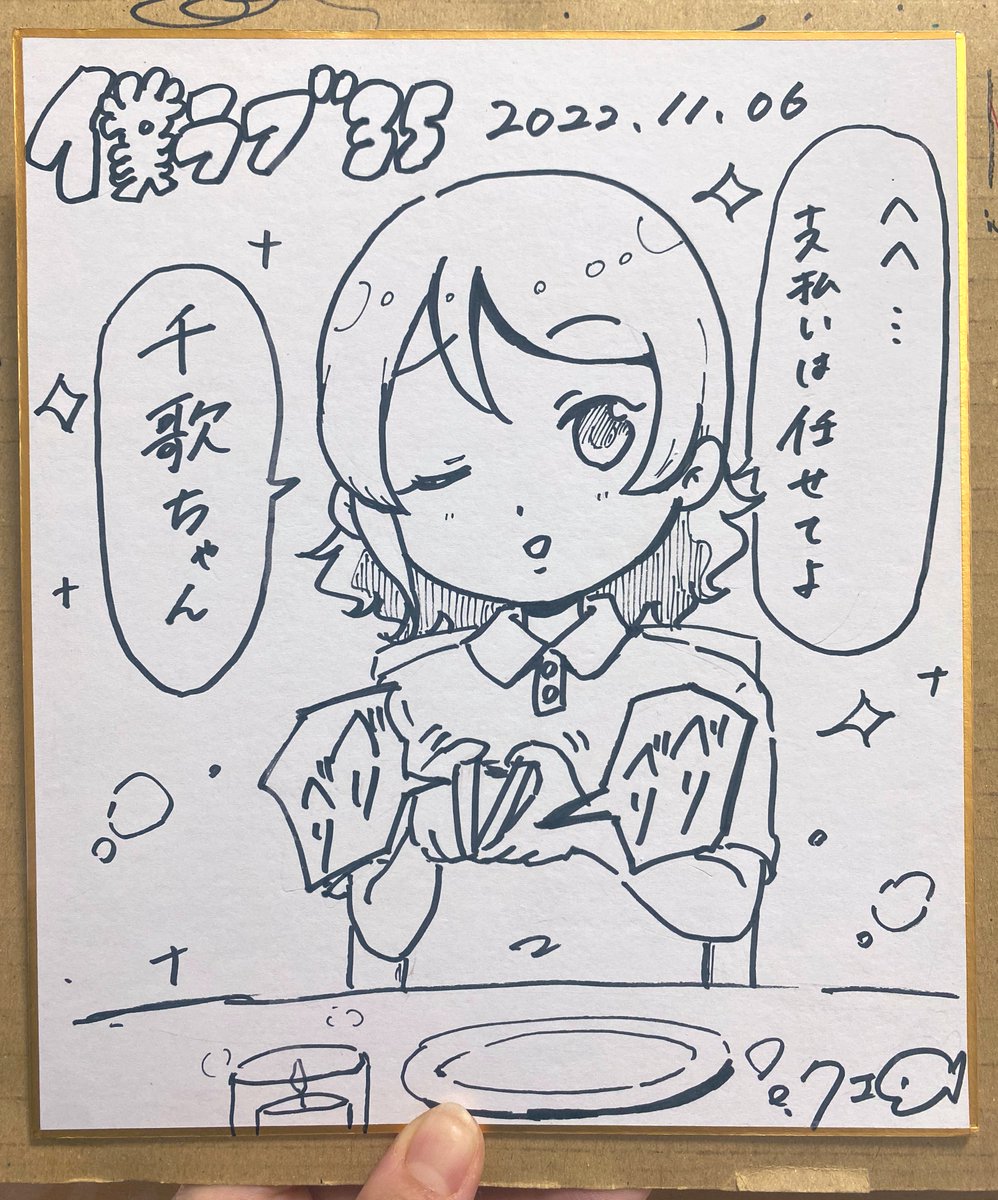 僕ラブ35
2022.11.06
へへ…
支払いは任せてよ
千歌ちゃん
ベリベリ
ベリベリ